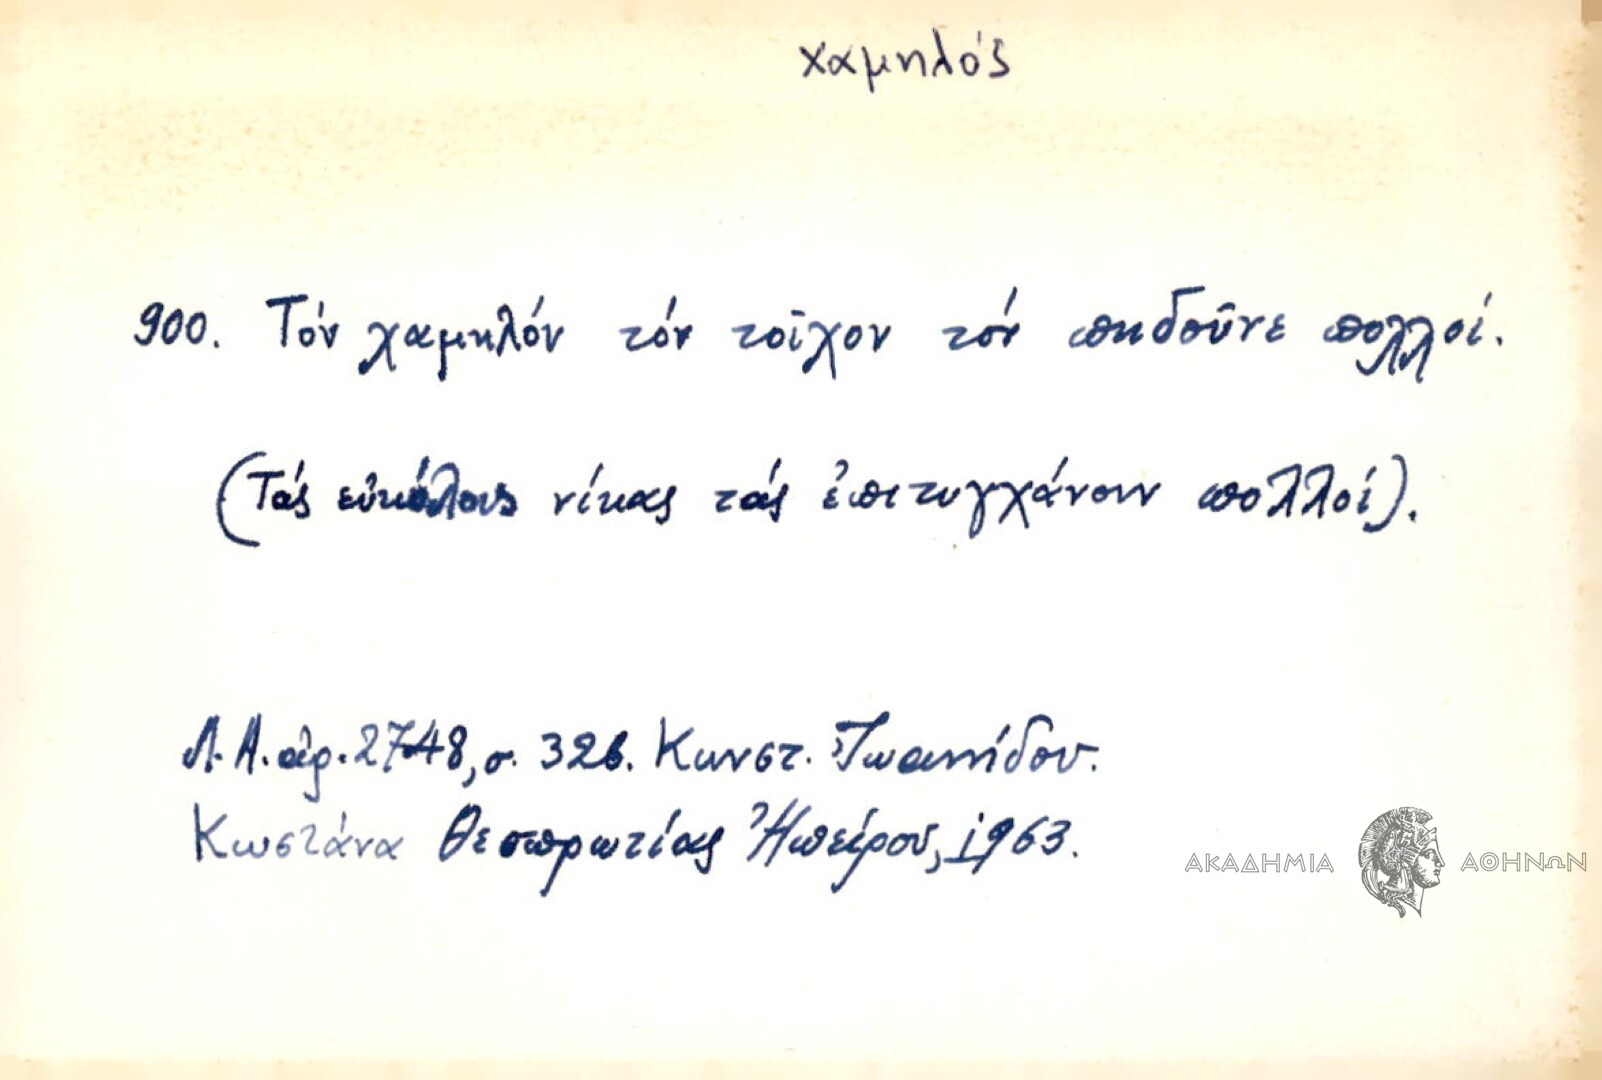 χαμηλός
900. Τόν χαμηλόν τόν τοῖχον τόν πηδοῦνε πολλοί.
(Τάς εὐκόλους νίκας τάς ἐπιτυγχάνουν πολλοί).
Λ.Α. ἀρ. 2748, σ. 326. Κωνστ. Ἰωαννίδου.
Κωστάνα Θεσπρωτίας Ἠπείρου, 1963.
ΑΚΑΔΗΜΙΑ ΑΘΗΝΩΝ